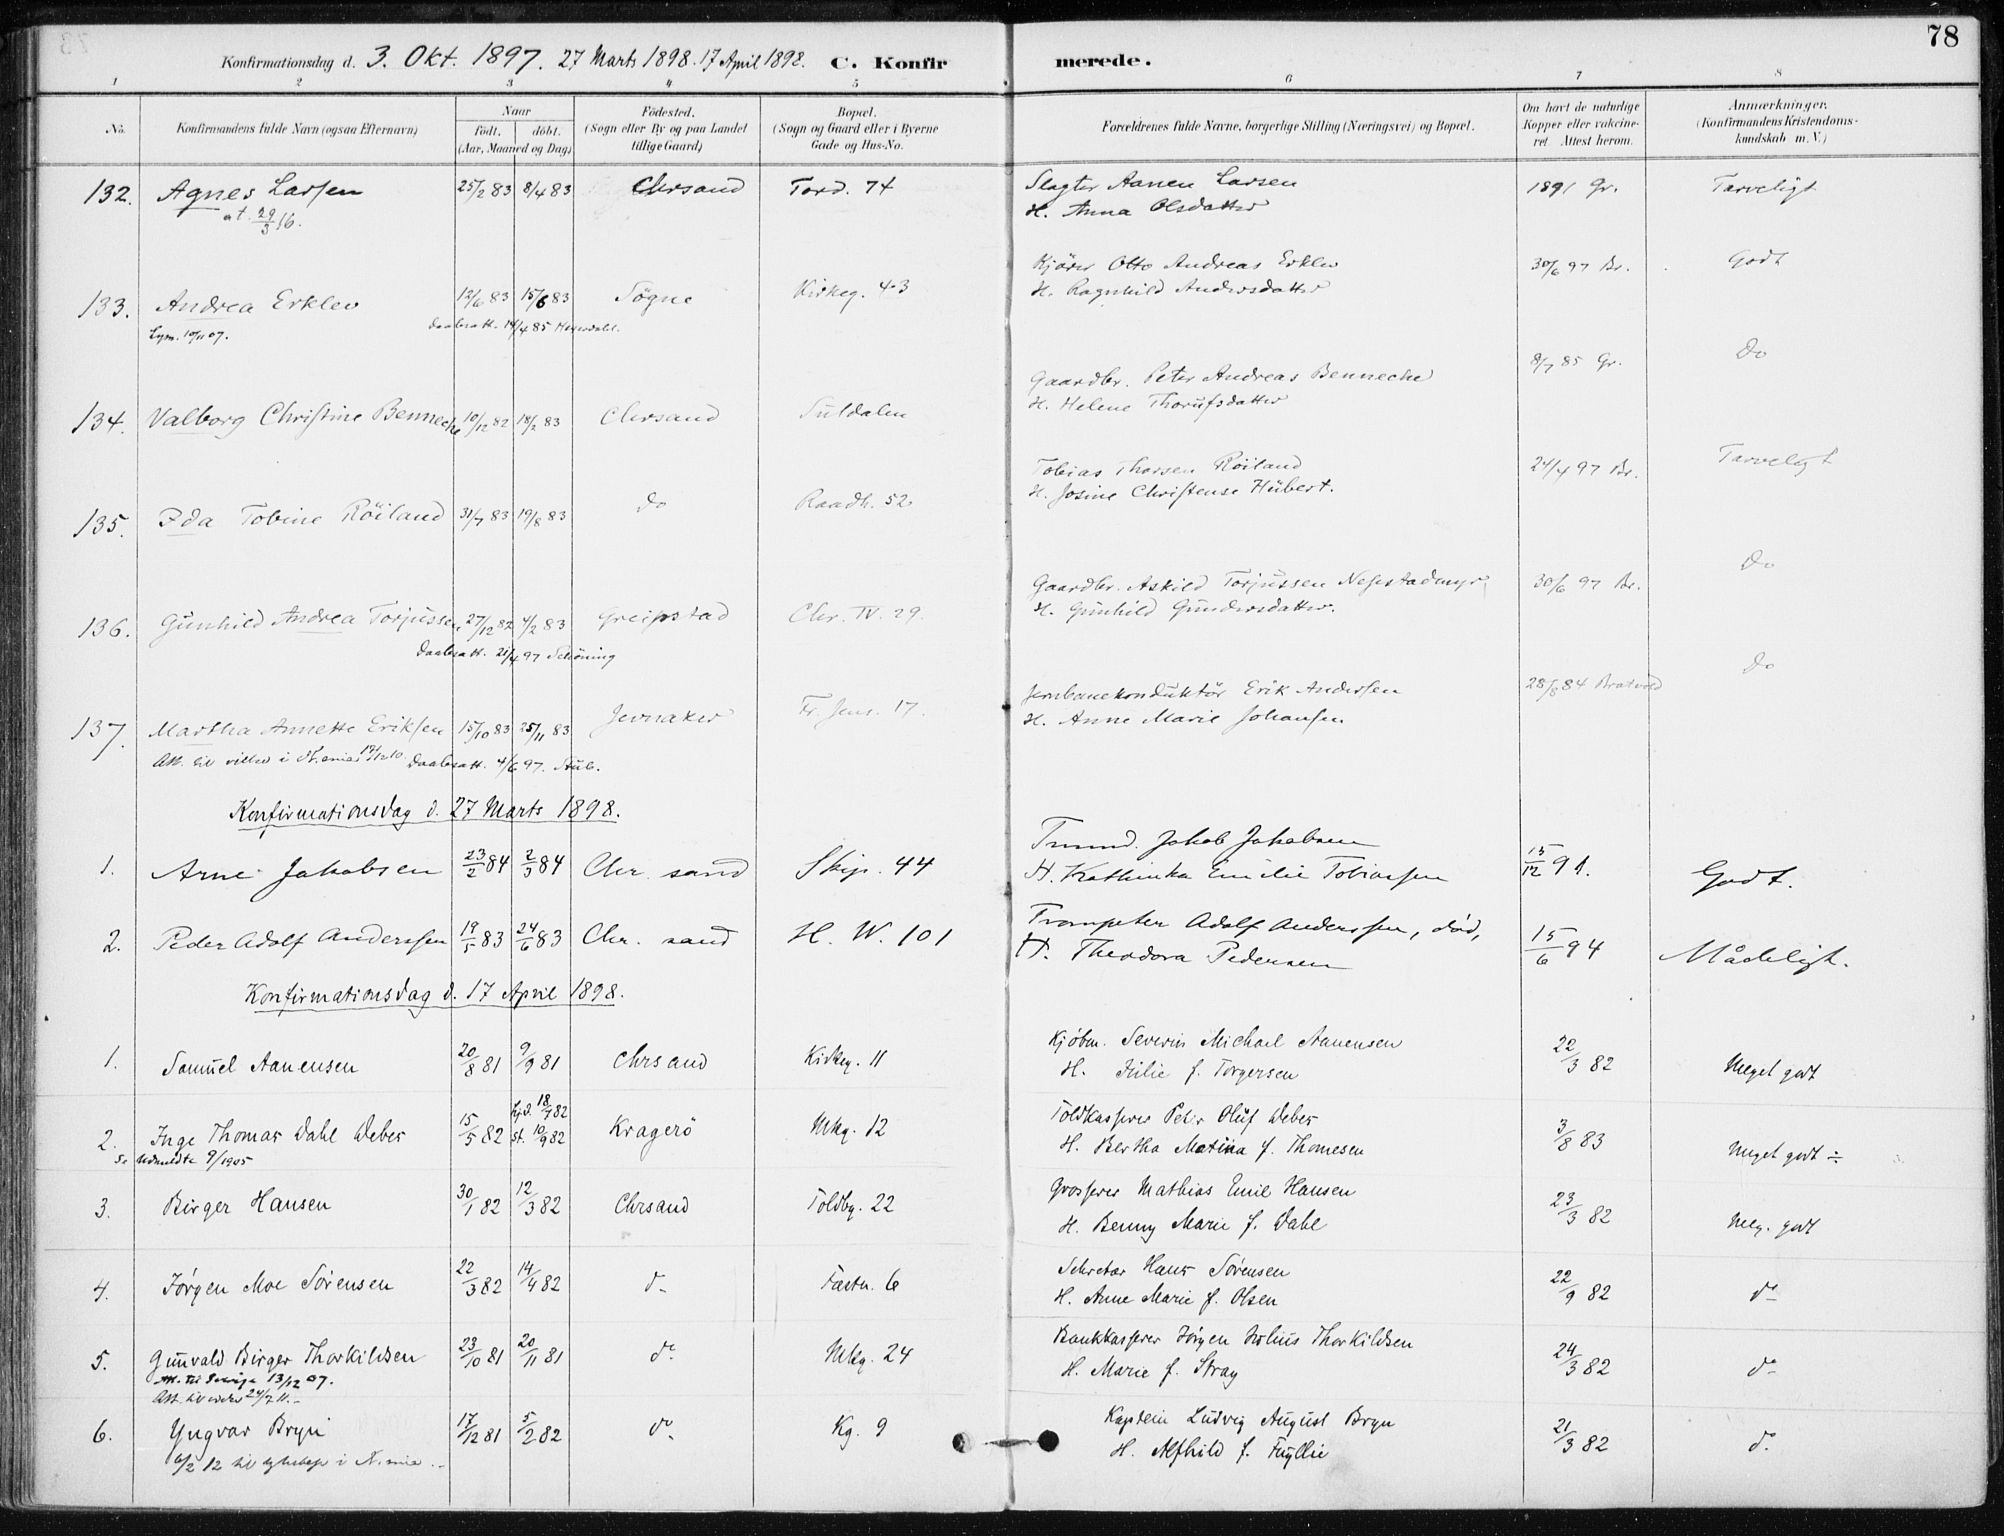 78
Konfirmationsdag d. 3. Okt. 1897. 27 Marts 1898. 17 April 1898. C. Konfirmerede.
1 2 3 4 5 6 7 8
No. Konfirmandens fulde Navn (ogsaa Efternavn) Naar födt. döbt. (Aar, Maaned og Dag) Födested. (Sogn eller By og paa Landet tillige Gaard) Bopæl. (Sogn og Gaard eller i Byerne Gade og Hus-No. Forældrenes fulde Navne, borgerlige Stilling (Næringsvei) og Bopæl. Om havt de naturlige Kopper eller vakcineret. Attest herom. Anmærkninger. (Konfirmandens Kristendomskundskab m. V.)
132. Agnes Larsen 25/2 83 8/4 83 Chrsand Tord. 74 Slagter Aanen Larsen 1891 Gr. Tarveligt
at. 29/3 16. H. Anna Olsdatter
133. Andrea Erklev 12/6 83 15/6 83 Sögne Kirkeg. 43 Kjörer Otto Andreas Erklev 30/6 97 Br. Godt
10/11 07. Daabsatt. 14/4 85 H. Ragnhild Andersdatter
134. Valborg Christine Benneche 10/12 82 18/2 83 Chrsand Suldalen Gaardbr. Peter Andreas Benneche 8/7 85 Gr. Do
H. Helene Thorufsdatter
135. Ida Tobine Röiland 31/7 83 19/8 83 do Raadh. 52 Tobias Thorsen Röiland 24/4 97 Br. Tarveligt
H. Josine Christense Hübert.
136. Günhild Andrea Torjussen 27/12 82 4/2 83 Greipstad Chr. IV. 29. Gaardbr. Askild Torjüssen 30/6 97 Br. Do
Daabsatt. 21/4 97 Schöning H. Günhild Gündersdatter.
137. Martha Annette Eriksen 15/10 83 25/11 83 Jevnaker Fr. Jens. 17. Jernbanekonduktör Erik Anderssen 28/8 84 Bratvold Do
Att. til i Daabsatt. 4/6 97. H. Anne Marie Johansen
Konfirmationsdag d. 27 Marts 1898.
1. Arne Jakobsen 23/2 84 2/3 84 Chr. sand Skip. 44 Jakob Jakobsen 15/12 91. Godt.
H. Kathinka Emilie Tobiassen
2. Peder Adolf Anderssen 19/5 83 24/6 83 Chr. sand H. W. 101 Trompeter Adolf Anderssen, död, 15/6 94 Mådeligt.
H. Theodora Pedersen
Konfirmationsdag d. 17 April 1898.
1. Samüel Aanensen 20/8 81 9/9 81 Chrsand Kirkeg. 11 Kjöbm. Severin Michael Aanensen 22/3 82 Meget godt
H. Jülie f. Torgersen
2. Inge Thomas Dahl Weber 15/5 82 hjd. 18/7 82 st. 10/9 82 Kragerö Mkg. 12 Toldkasserer Peter Olüf Weber 3/8 83 Meget godt ÷
Udmeldte 9/1905 H. Bertha Matina f. Thomesen
3. Birger Hansen 30/1 82 12/3 82 Chrsand Toldbg. 22 Grosserer Mathias Emil Hansen 23/3 82 Meg. godt
H. Benny Marie f. Dahl
4. Jørgen Moe Sørensen 22/3 82 14/4 82 do Fæstn. 6 Sekretær Hans Sörensen 22/9 82 do
H. Anne Marie f. Olsen
5. Günvald Birger Thorkildsen 23/10 81 20/11 81 do Mkg. 24 Bankkasserer Jörgen Thorkildsen 24/3 82 do
Att. til 13/12 07. H. Marie f. Stray
Att. til 24/7 11.
6. Yngvar Bryn 17/12 81 5/2 82 do Kg. 9 Kaptein Ludvig August Bryn 21/3 82 do
6/2 12 til i H. Alfhild f.